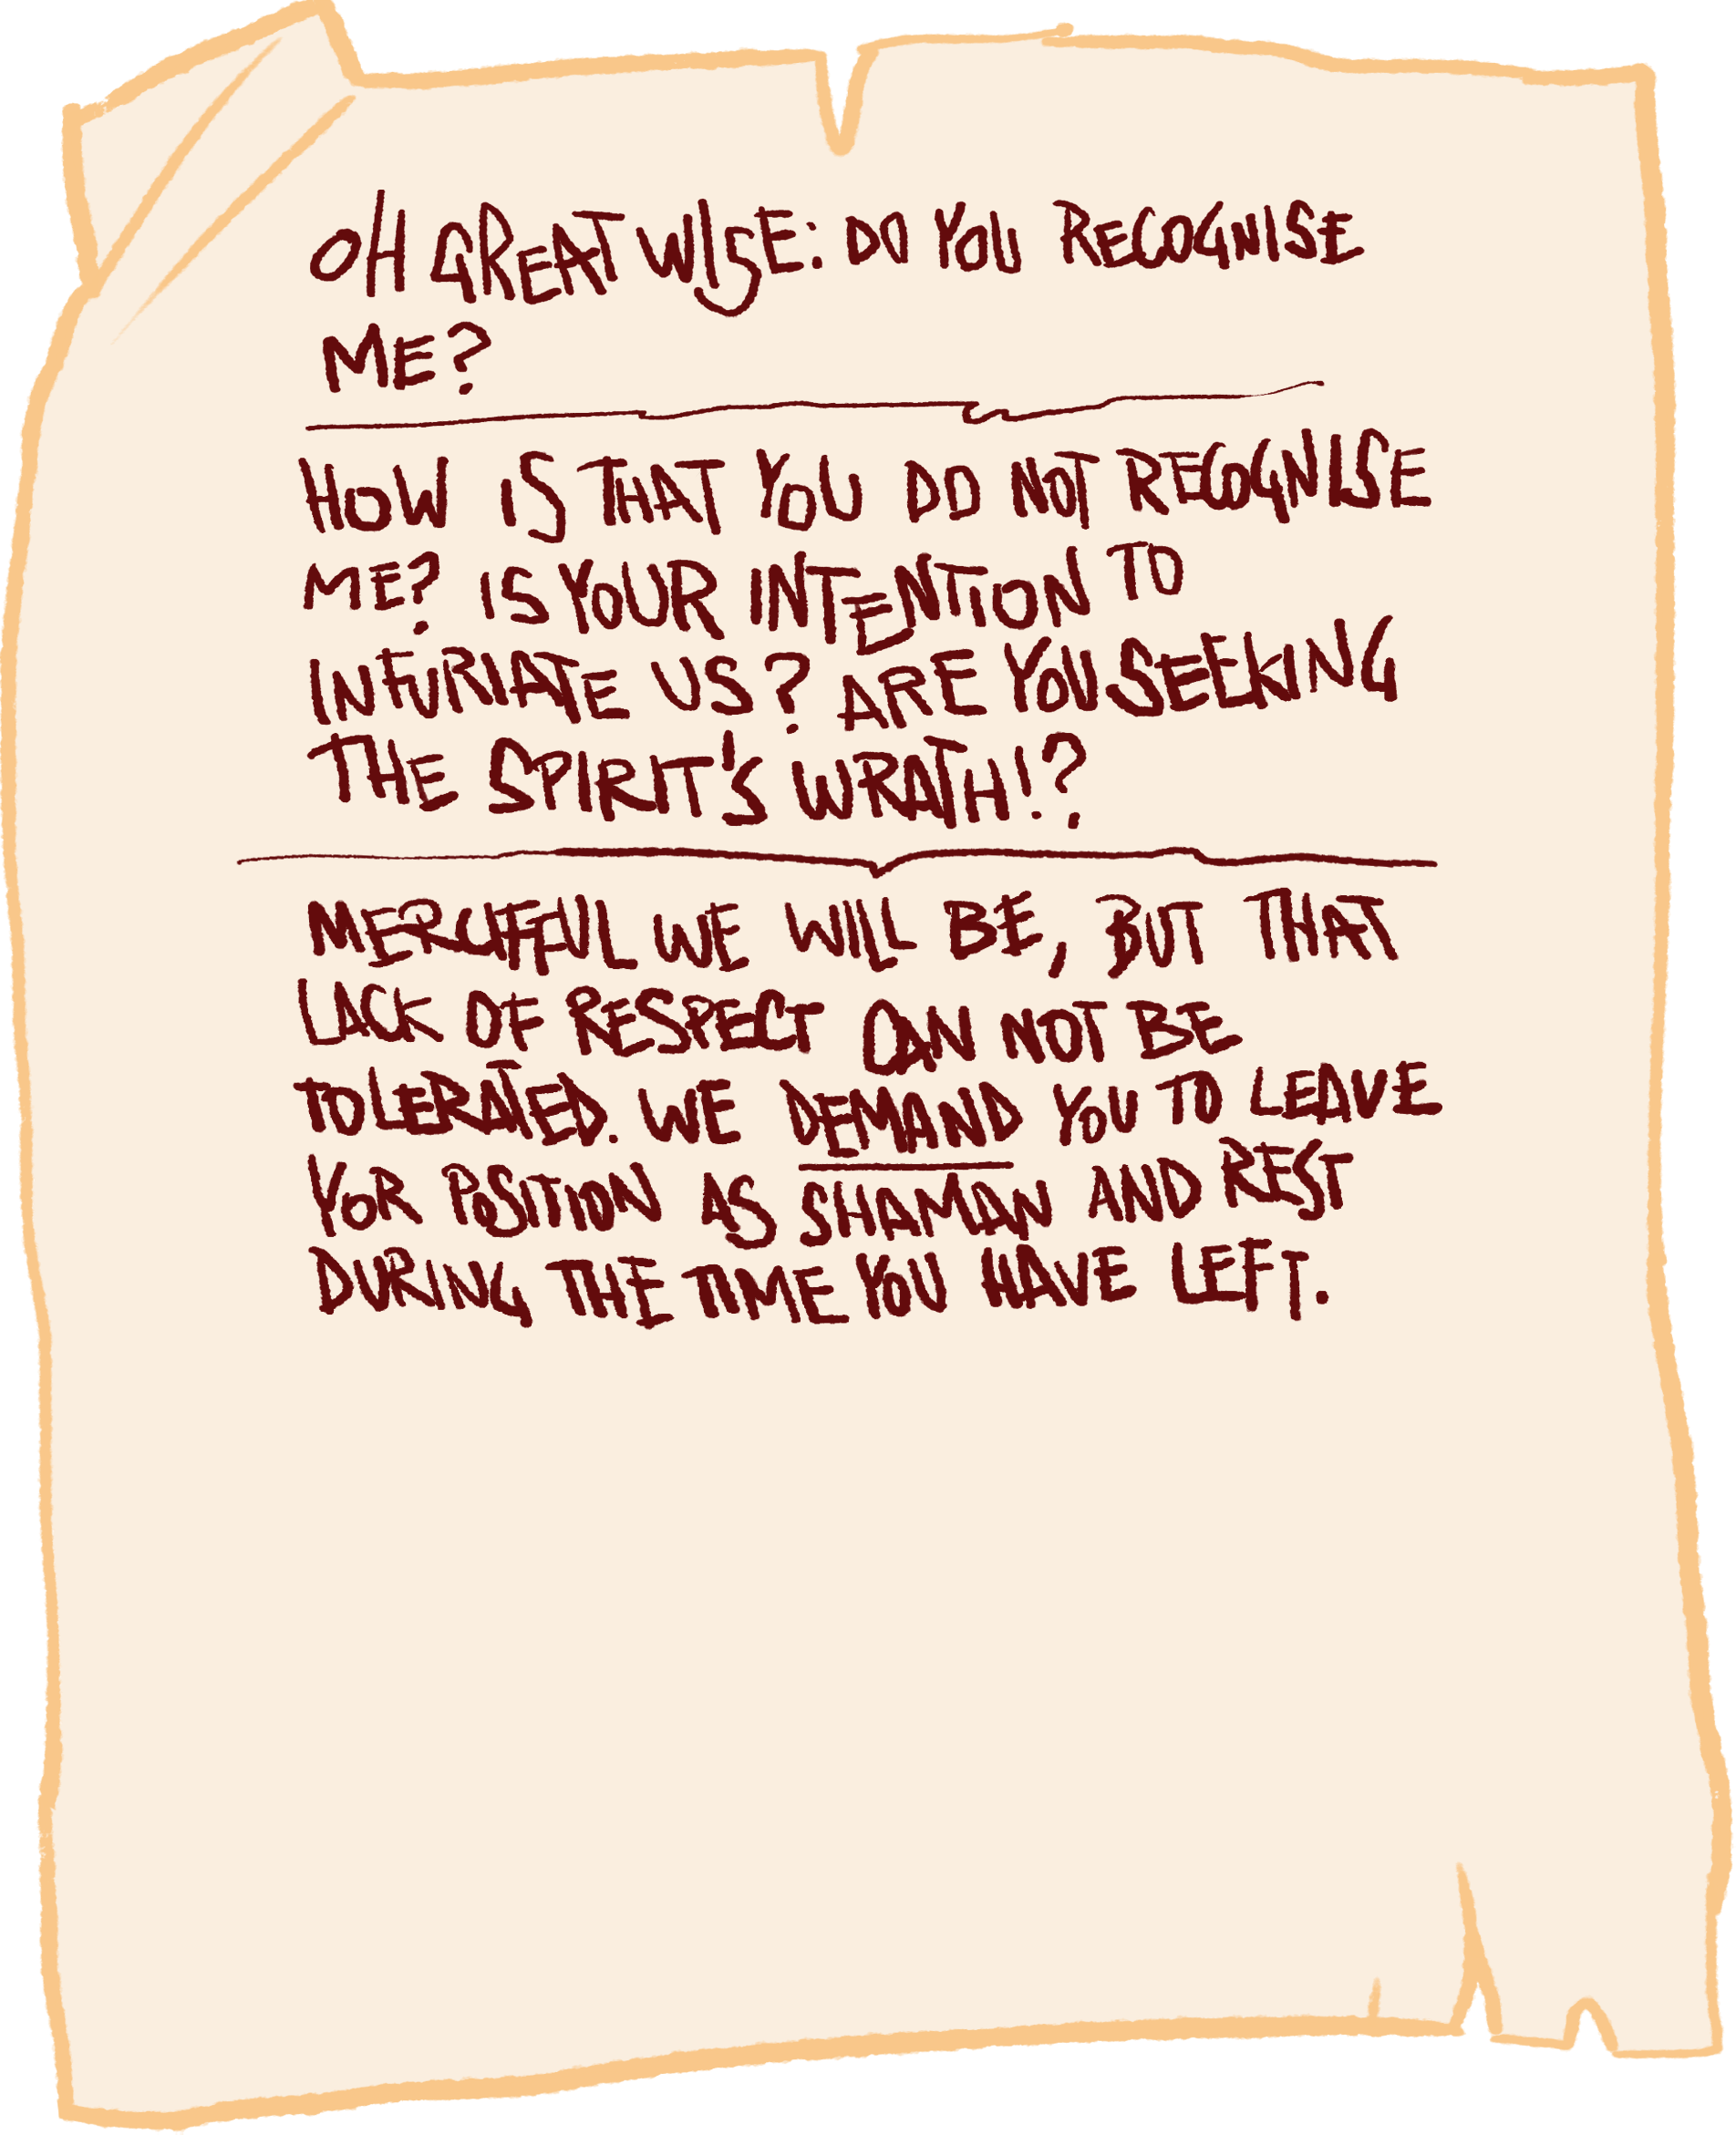 OH GREAT WISE: DO YOU RECOGNISE
ME?
HOW IS THAT YOU DO NOT RECOGNISE
ME? IS YOUR INTENTION TO
INFURIATE US? ARE YOU SEEKING
THE SPIRIT'S WRATH!?
MERCIFUL WE WILL BE, BUT THAT
LACK OF RESPECT CAN NOT BE
TOLERATED. WE DEMAND YOU TO LEAVE
YOR POSITION AS SHAMAN AND REST
DURING THE TIME YOU HAVE LEFT.